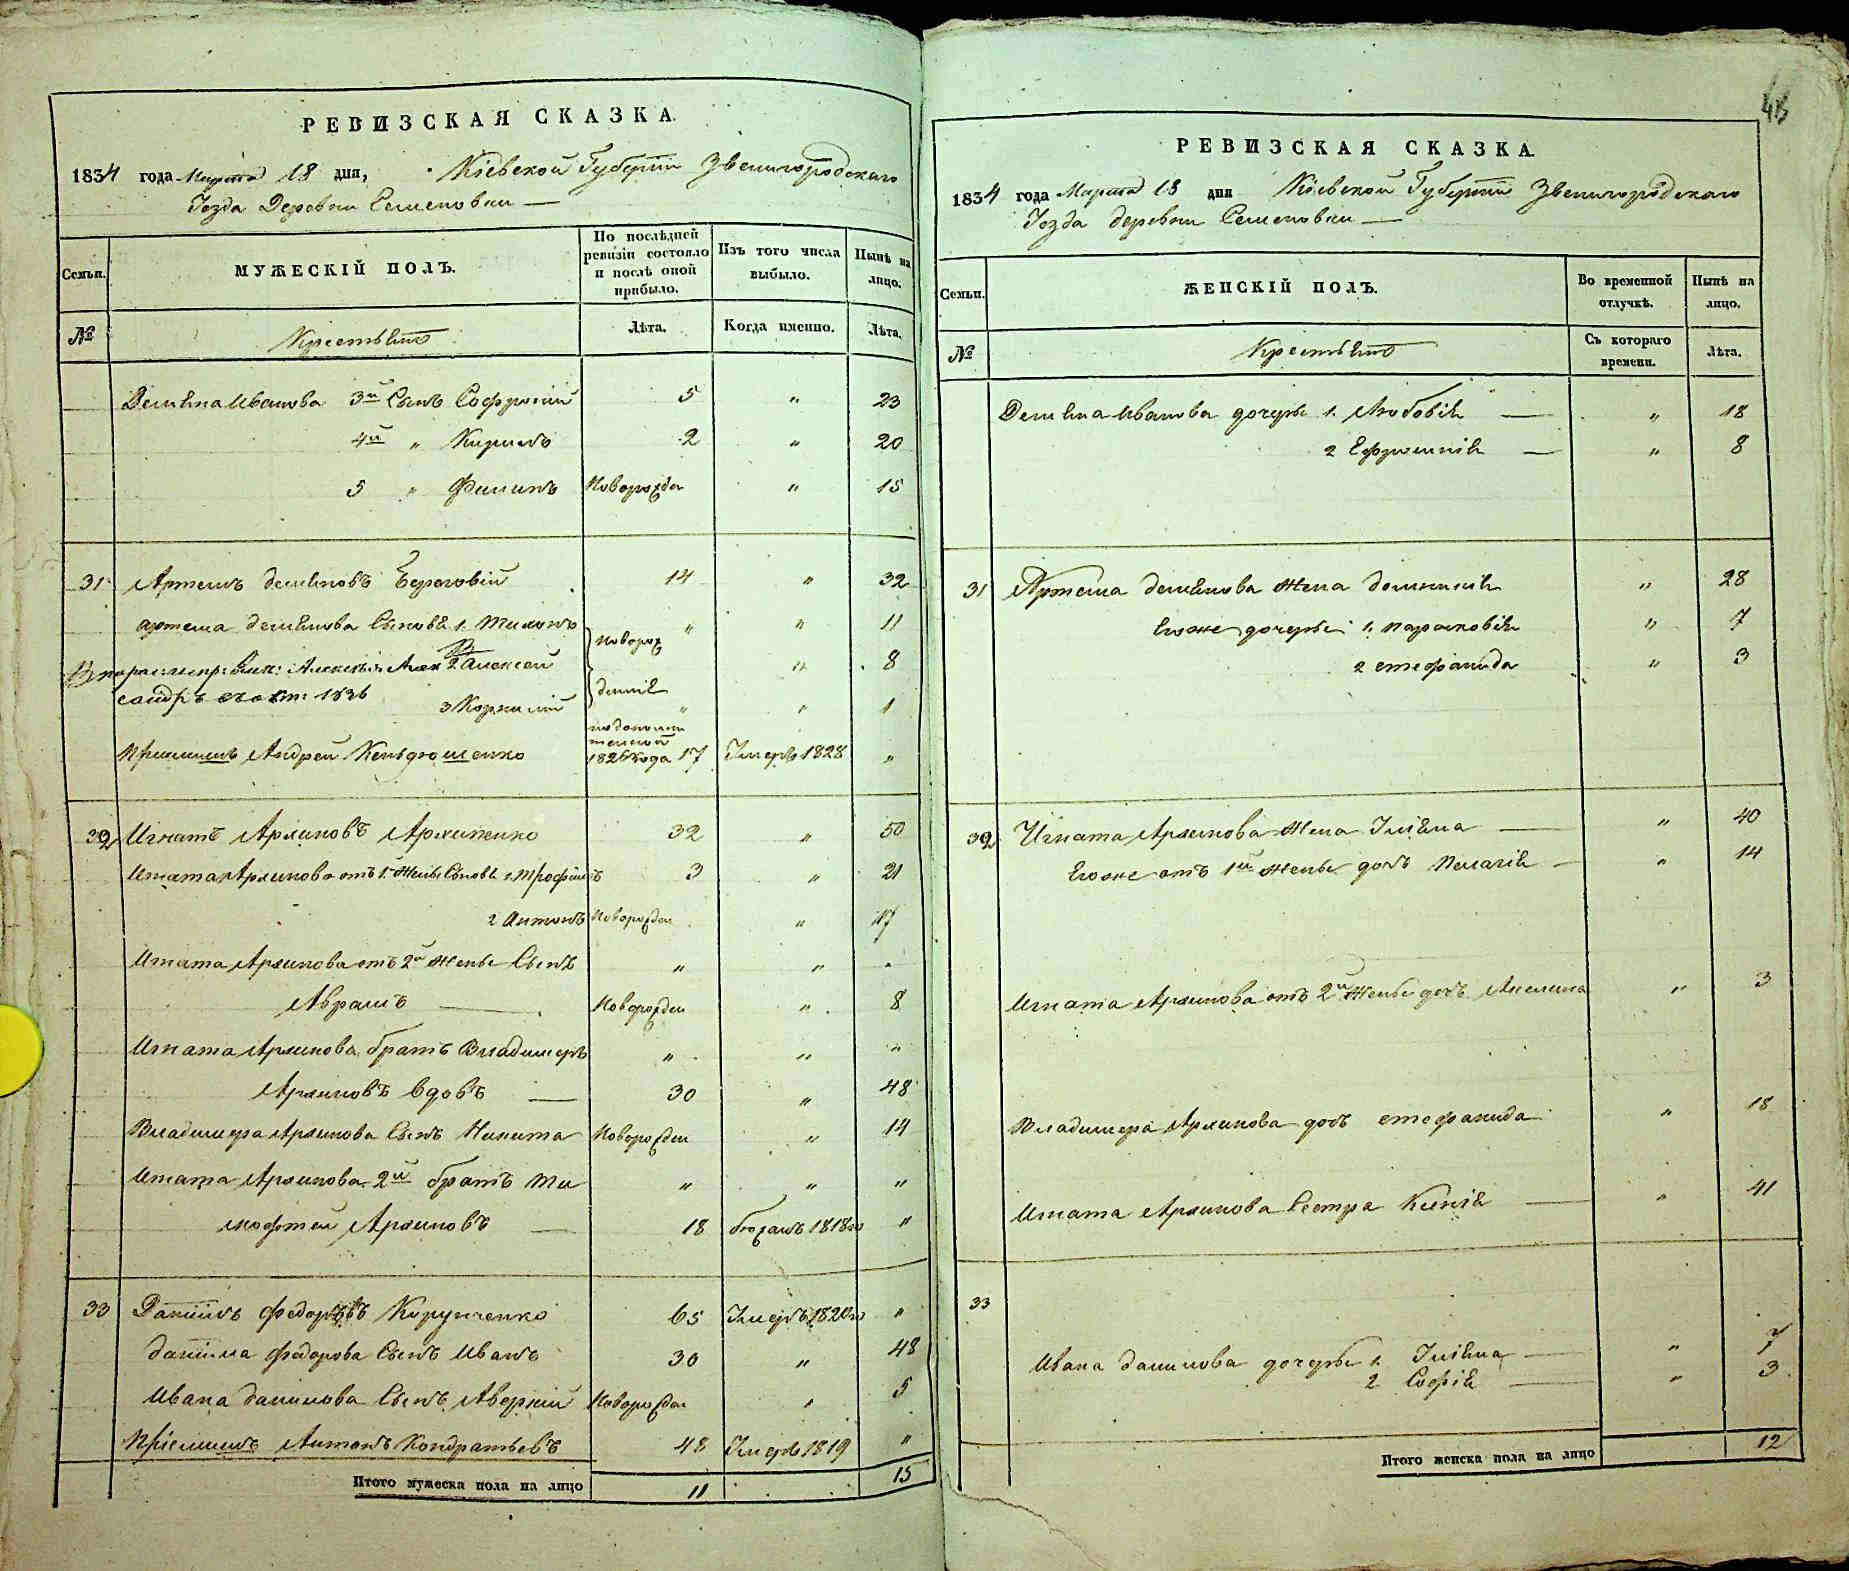 РЕВИЗСКАЯ СКАЗКА.
1834 года Марта 18 дня, Кіевской Губерніи Звенигородскаго
Уезда Деревни Семеновки —
Семьи. МУЖЕСКІЙ ПОЛЪ. По послѣдней ревизіи состояло и послѣ оной прибыло. Изъ того числа выбыло. Нынѣ на лицо.
№ Крестьянъ Лѣта. Когда именно. Лѣта.
Демяна Иванова 3й Сынъ Софроній 5 " 23
4й " Кирилъ 2 " 20
5 " Филипъ Новорожден 15
31 Артемъ Демяновъ Береговій 14 " 32
Артема Демянова Сыновя 1. Тихонъ " " 11
новорож
2 Алексей " 8
сандръ 1836
денніе
3 Корнилій " " 1
Пріимишъ Андрей 1826 года 17 Умеръ 1828 "
32 Игнатъ Архиповъ Архипенко 32 " 50
Игната Архипова отъ 1й Жены Сыновя 1 Трофимъ 3 " 21
2 Антонъ Новорожден " 17
Игната Архипова отъ 2й Жены Сынъ " " "
Аврамъ — Новорожден " 8
Игната Архипова братъ Владимеръ " " "
Архиповъ вдовъ — 30 " 48
Владимера Архипова Сынъ Никита Новорожден " 14
Игната Архипова 2й братъ Ти " " "
мофтей Архиповъ — 18 бежалъ 1818го "
33 Даніилъ Федоровъ Корунченко 65 Умеръ 1820го "
Даніила Федорова Сынъ Иванъ 30 " 48
Ивана Данилова Сынъ Аверкій Новорожден " 5
Пріемишъ Антонъ Кондратьевъ 48 Умеръ 1819 "
Итого мужеска пола на лицо 11 15
РЕВИЗСКАЯ СКАЗКА.
1834 года Марта 18 дня Кіевской Губерніи Звенигородскаго
Уезда деревни Семеновки —
Семьи. ЖЕНСКІЙ ПОЛЪ. Во временной отлучкѣ. Нынѣ на лицо.
№ Крестьянъ Съ котораго времени. Лѣта.
Демяна Иванова дочери 1. Любовія — " 18
2 Ефросинія — " 8
31 Артема Демянова Жена Домникія " 28
Егоже дочери 1. Парасковія " 7
2 Стефанида " 3
32 Игната Архипова Жена Уліяна — " 40
Егоже отъ 1й Жены дочь Пелагія — " 14
Игната Архипова отъ 2й Жены дочь Акелина " 3
Владимера Архипова дочь Стефанида " 18
Игната Архипова Сестра Ксенія — " 41
33
Ивана Данилова дочери 1. Уліяна — " 7
2 Софія — " 3
Итого женска пола на лицо 12